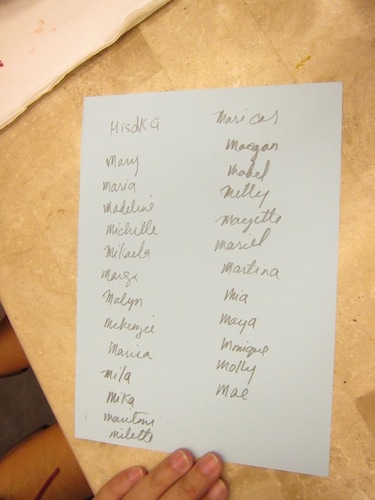 Mary
Maria
Madeline
Michelle
Mikaela
Marga
Malyn
McKenzie
Mila
Mika
Milette
Maricas
Maegan
Mabel
Melly
Mayette
Mariel
Martina
Mia
Maya
Monique
Molly
Mae